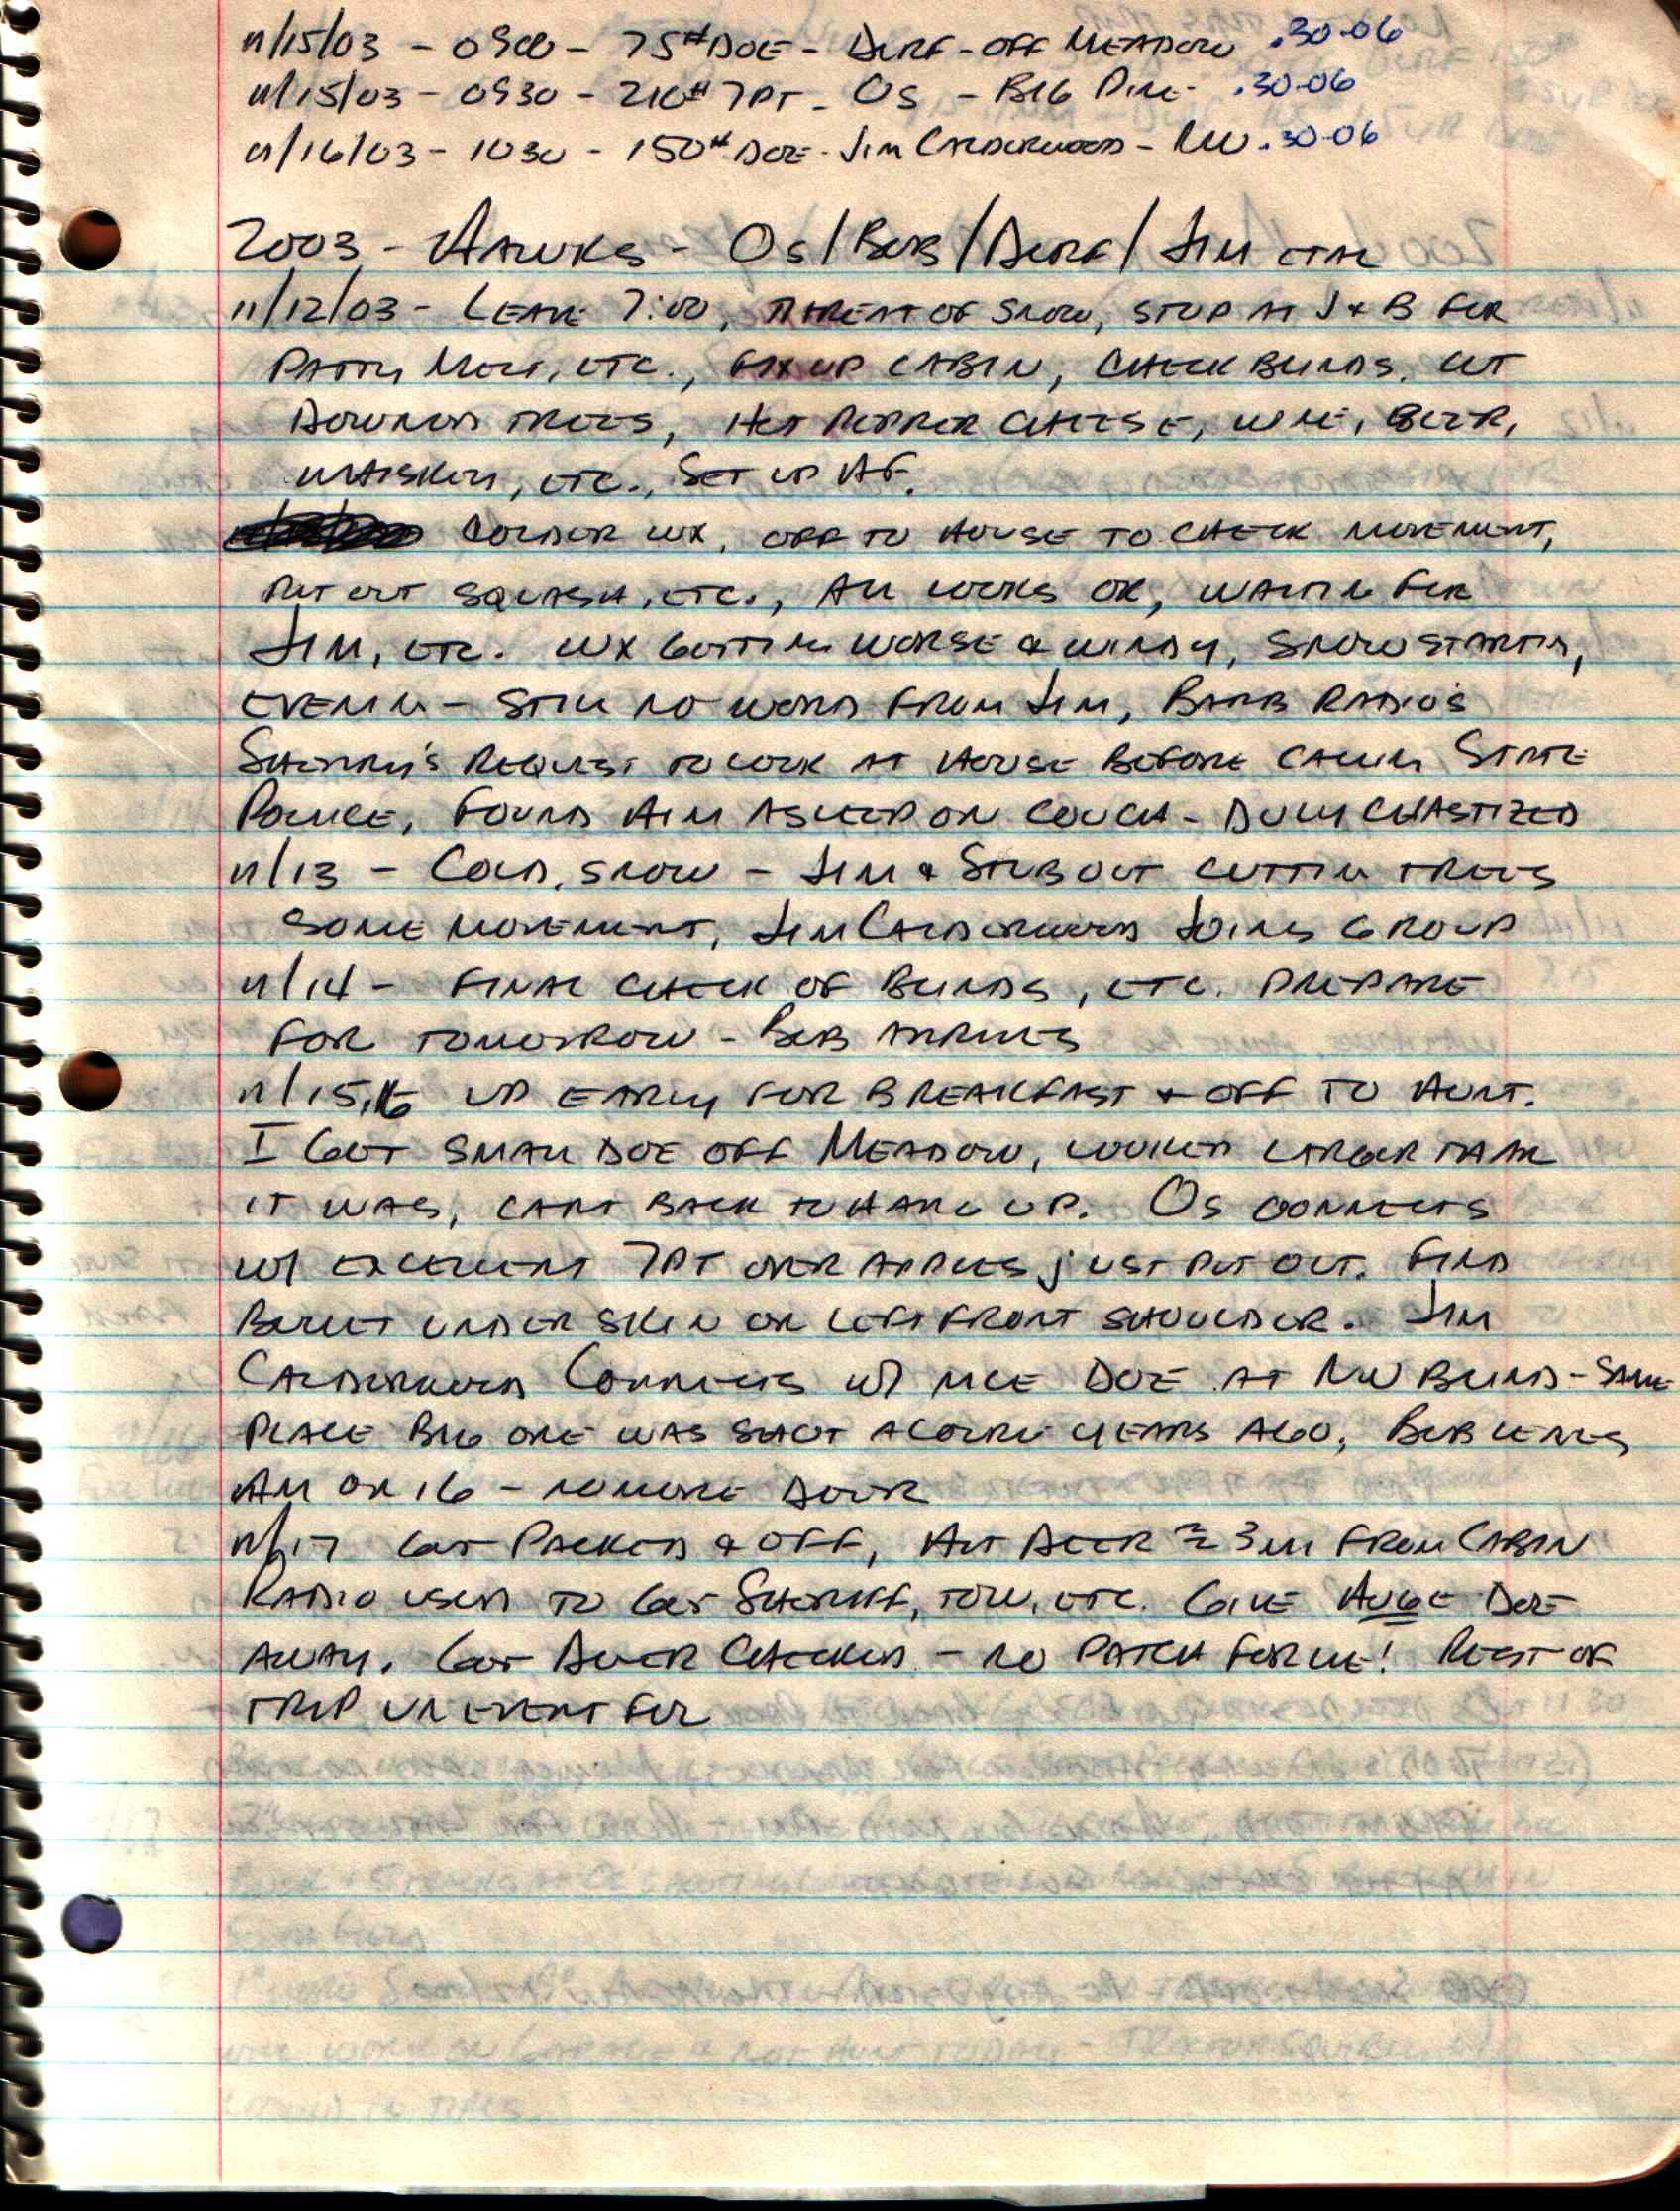 11/15/03 - 0900 - 75# DOE - DERF - OFF MEADOW .30-06
11/15/03 - 0930 - 210# 7PT - OS - BIG PINE - .30-06
11/16/03 - 1030 - 150# DOE - JIM CALDERWOOD - NW .30-06
2003 - HAWKS - OS/BOB/DERF/JIM ETAL
11/12/03 - LEAVE 7:00, THREAT OF SNOW, STOP AT J & B FOR
PATTY MELT, ETC., FIX UP CABIN, CHECK BLINDS, CUT
DOWNED TREES, HOT PEPPER CHEESE, WINE, BEER,
WHISKEY, ETC., SET UP HF.
COLDER WX, OFF TO HOUSE TO CHECK MOVEMENT,
PUT OUT SQUASH, ETC., ALL LOOKS OK, WAITIN FOR
JIM, ETC. WX GETTIN WORSE & WINDY, SNOW STARTIN,
EVENIN - STILL NO WORD FROM JIM, BARB RADIO'S
SHERRY'S REQUEST TO LOOK AT HOUSE BEFORE CALLIN STATE
POLICE, FOUND HIM ASLEEP ON COUCH - DULY CHASTIZED
11/13 - COLD, SNOW - JIM & OUT CUTTIN TREES
SOME MOVEMENT, JIM CALDERWOOD JOINS GROUP
11/14 - FINAL CHECK OF BLINDS, ETC. PREPARE
FOR TOMORROW - BOB ARRIVES
11/15,16 UP EARLY FOR BREAKFAST & OFF TO HUNT.
I GOT SMALL DOE OFF MEADOW, LOOKED LARGER THAN
IT WAS, CART BACK TO HANG UP. OS CONNECTS
W/ EXCELLENT 7PT OVER APPLES JUST PUT OUT. FIND
BULLET UNDER SKIN ON LEFT FRONT SHOULDER. JIM
CALDERWOOD CONNECTS W/ NICE DOE AT NW BLIND - SAME
PLACE BIG ONE WAS SHOT A COUPLE YEARS AGO, BOB LEAVES
AM ON 16 - NO MORE DEER
11/17 GET PACKED & OFF, HIT DEER ≈ 3 MI FROM CABIN
RADIO USED TO GET SHERIFF, TOW, ETC. GIVE HUGE DOE
AWAY. GOT DEER CHECKED - NO PATCH FOR ME! REST OF
TRIP UNEVENTFUL